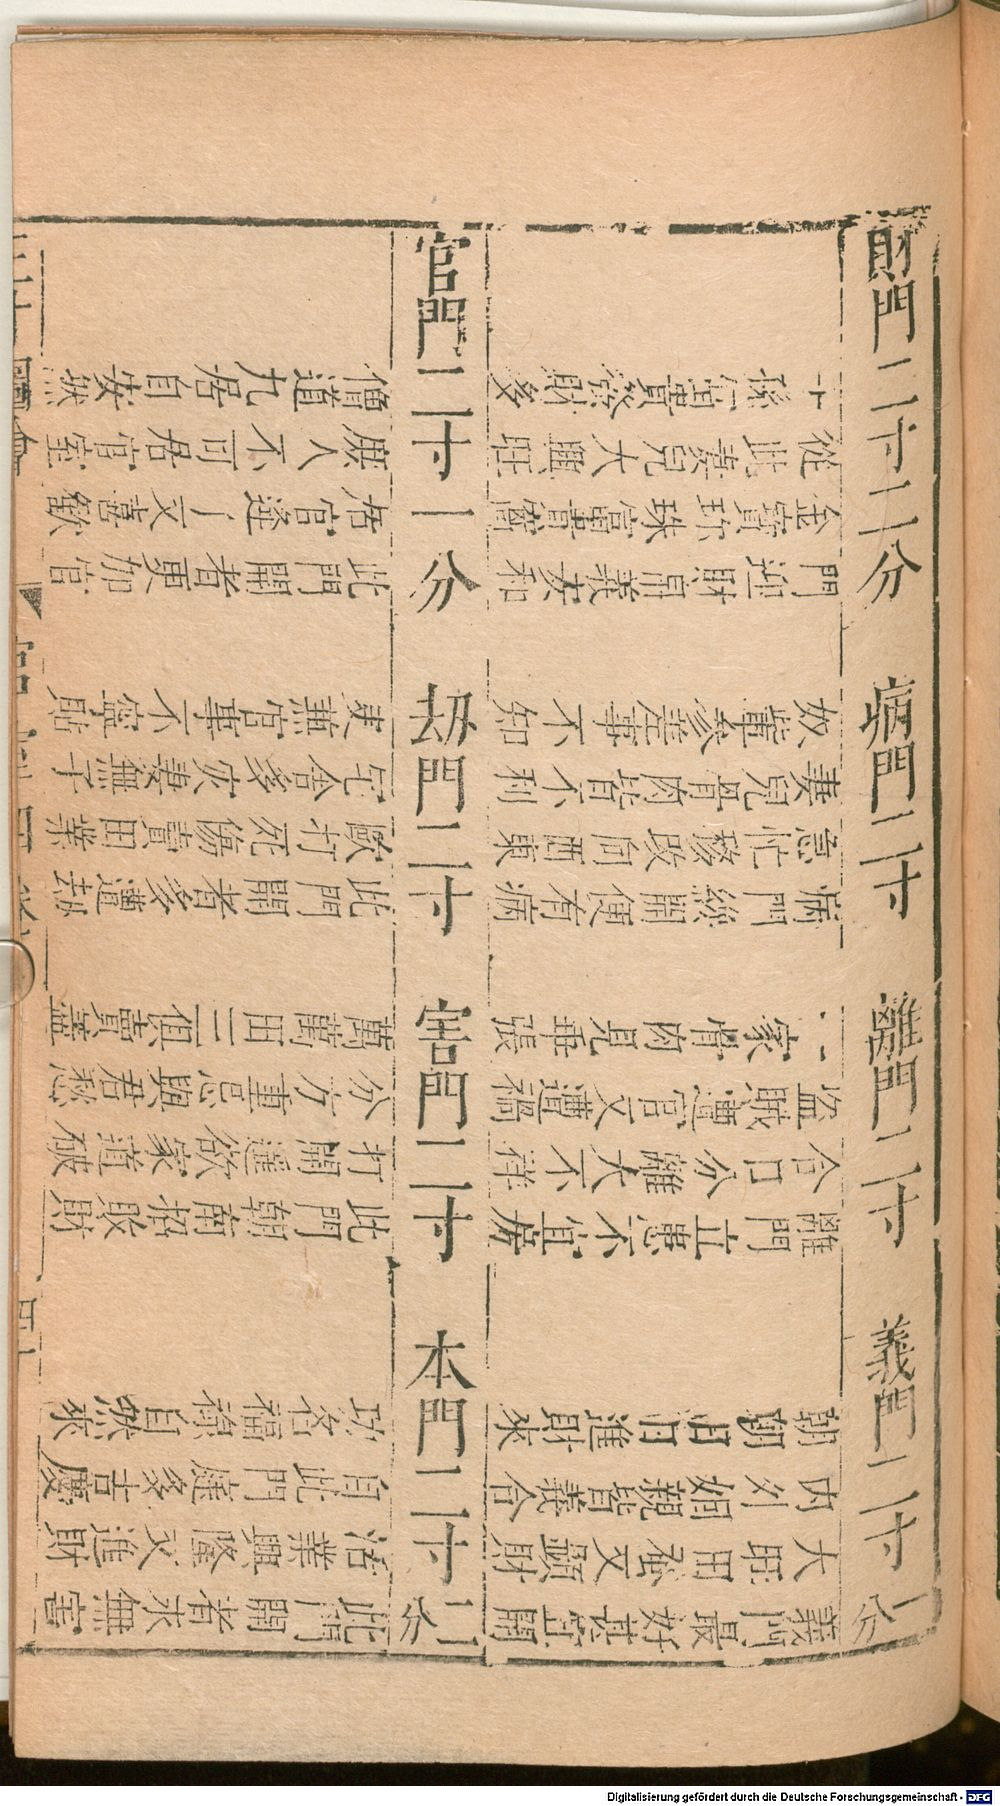 財門二寸二分
門迎財帛義安和
金寶珍珠富書箇
從此妻兒大興旺
孫官貴發財多
病門二寸
病門纔開便有病
急忙移改向西東
妻兒骨肉皆不利
奴輩參差事不知
離門二寸
離門立患不宜
合口分離大不祥
盜賊遭官又遭禍
一家骨肉見乖張
義門二寸一分
義門最好甚宜開
大旺田蚕又顯財
內外姻親皆義合
朝朝日日進財來
官門二寸一分
此門開者更加官
居官逢了又喜歡
庶人不可居官室
僧道九居自安然
劫門二寸
此門開者多遭劫
歐打死傷賣田業
宅舍多灾妻無子
更兼官事不寧貼
害門二寸
此門朝南招敗財
打鬭 欲家道破
分方重忌與君愁
萬萬田二但賣盡
本門二寸二分
此門開者永無害
活業興隆又進財
自此門庭多吉慶
功名福祿自然來
Digitalisierung gefördert durch die Deutsche Forschungsgemeinschaft - DFG